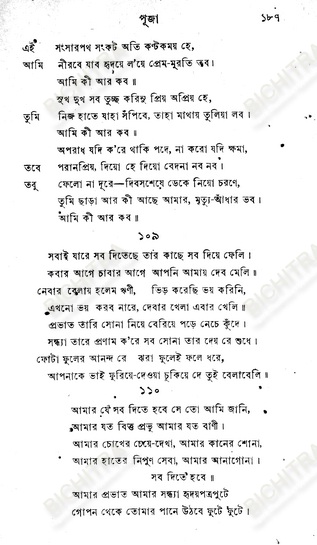 পূজা ১৮৭
এই সংসারপথ সংকট অতি কণ্টকময় হে,
আমি নীরবে যাব হৃদয়ে ল'য়ে প্রেম-মুরতি তব।
আমি কী আর কব॥
সুখ দুখ সব তুচ্ছ করিনু প্রিয় অপ্রিয় হে,
তুমি নিজ হাতে যাহা সঁপিবে, তাহা মাথায় তুলিয়া লব।
আমি কী আর কব॥
অপরাধ যদি ক'রে থাকি পদে, না করো যদি ক্ষমা,
তবে পরানপ্রিয়, দিয়ো হে দিয়ো বেদনা নব নব।
তবু ফেলো না দূরে—দিবসশেষে ডেকে নিয়ো চরণে,
তুমি ছাড়া আর কী আছে আমার, মৃত্যু-আঁধার ভব।
আমি কী আর কব॥
১০৯
সবাই যারে সব দিতেছে তার কাছে সব দিয়ে ফেলি।
কবার আগে চাবার আগে আপনি আমায় দেব মেলি॥
নেবার বেলায় হলেম ঋণী, ভিড় করেছি ভয় করিনি,
এখনো ভয় করব নারে, দেবার খেলা এবার খেলি॥
প্রভাত তারি সোনা নিয়ে বেরিয়ে পড়ে নেচে কুঁদে।
সন্ধ্যা তারে প্রণাম ক'রে সব সোনা তার দেয় রে শুধে।
ফোটা ফুলের আনন্দ রে ঝরা ফুলেই ফলে ধরে,
আপনাকে ভাই ফুরিয়ে-দেওয়া চুকিয়ে দে তুই বেলাবেলি॥
১১০
আমার যে সব দিতে হবে সে তো আমি জানি,
আমার যত বিত্ত প্রভু আমার যত বাণী।
আমার চোখের চেয়ে-দেখা, আমার কানের শোনা,
আমার হাতের নিপুণ সেবা, আমার আনাগোনা।
সব দিতে হবে॥
আমার প্রভাত আমার সন্ধ্যা হৃদয়পত্রপুটে
গোপন থেকে তোমার পানে উঠবে ফুটে ফুটে।
BICHITRA